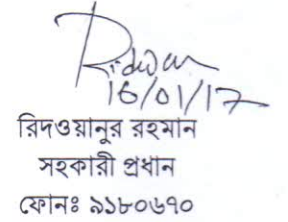 Ridwan
16/01/17
রিদওয়ানুর রহমান
সহকারী প্রধান
ফোনঃ ৯১৮০৬৭০